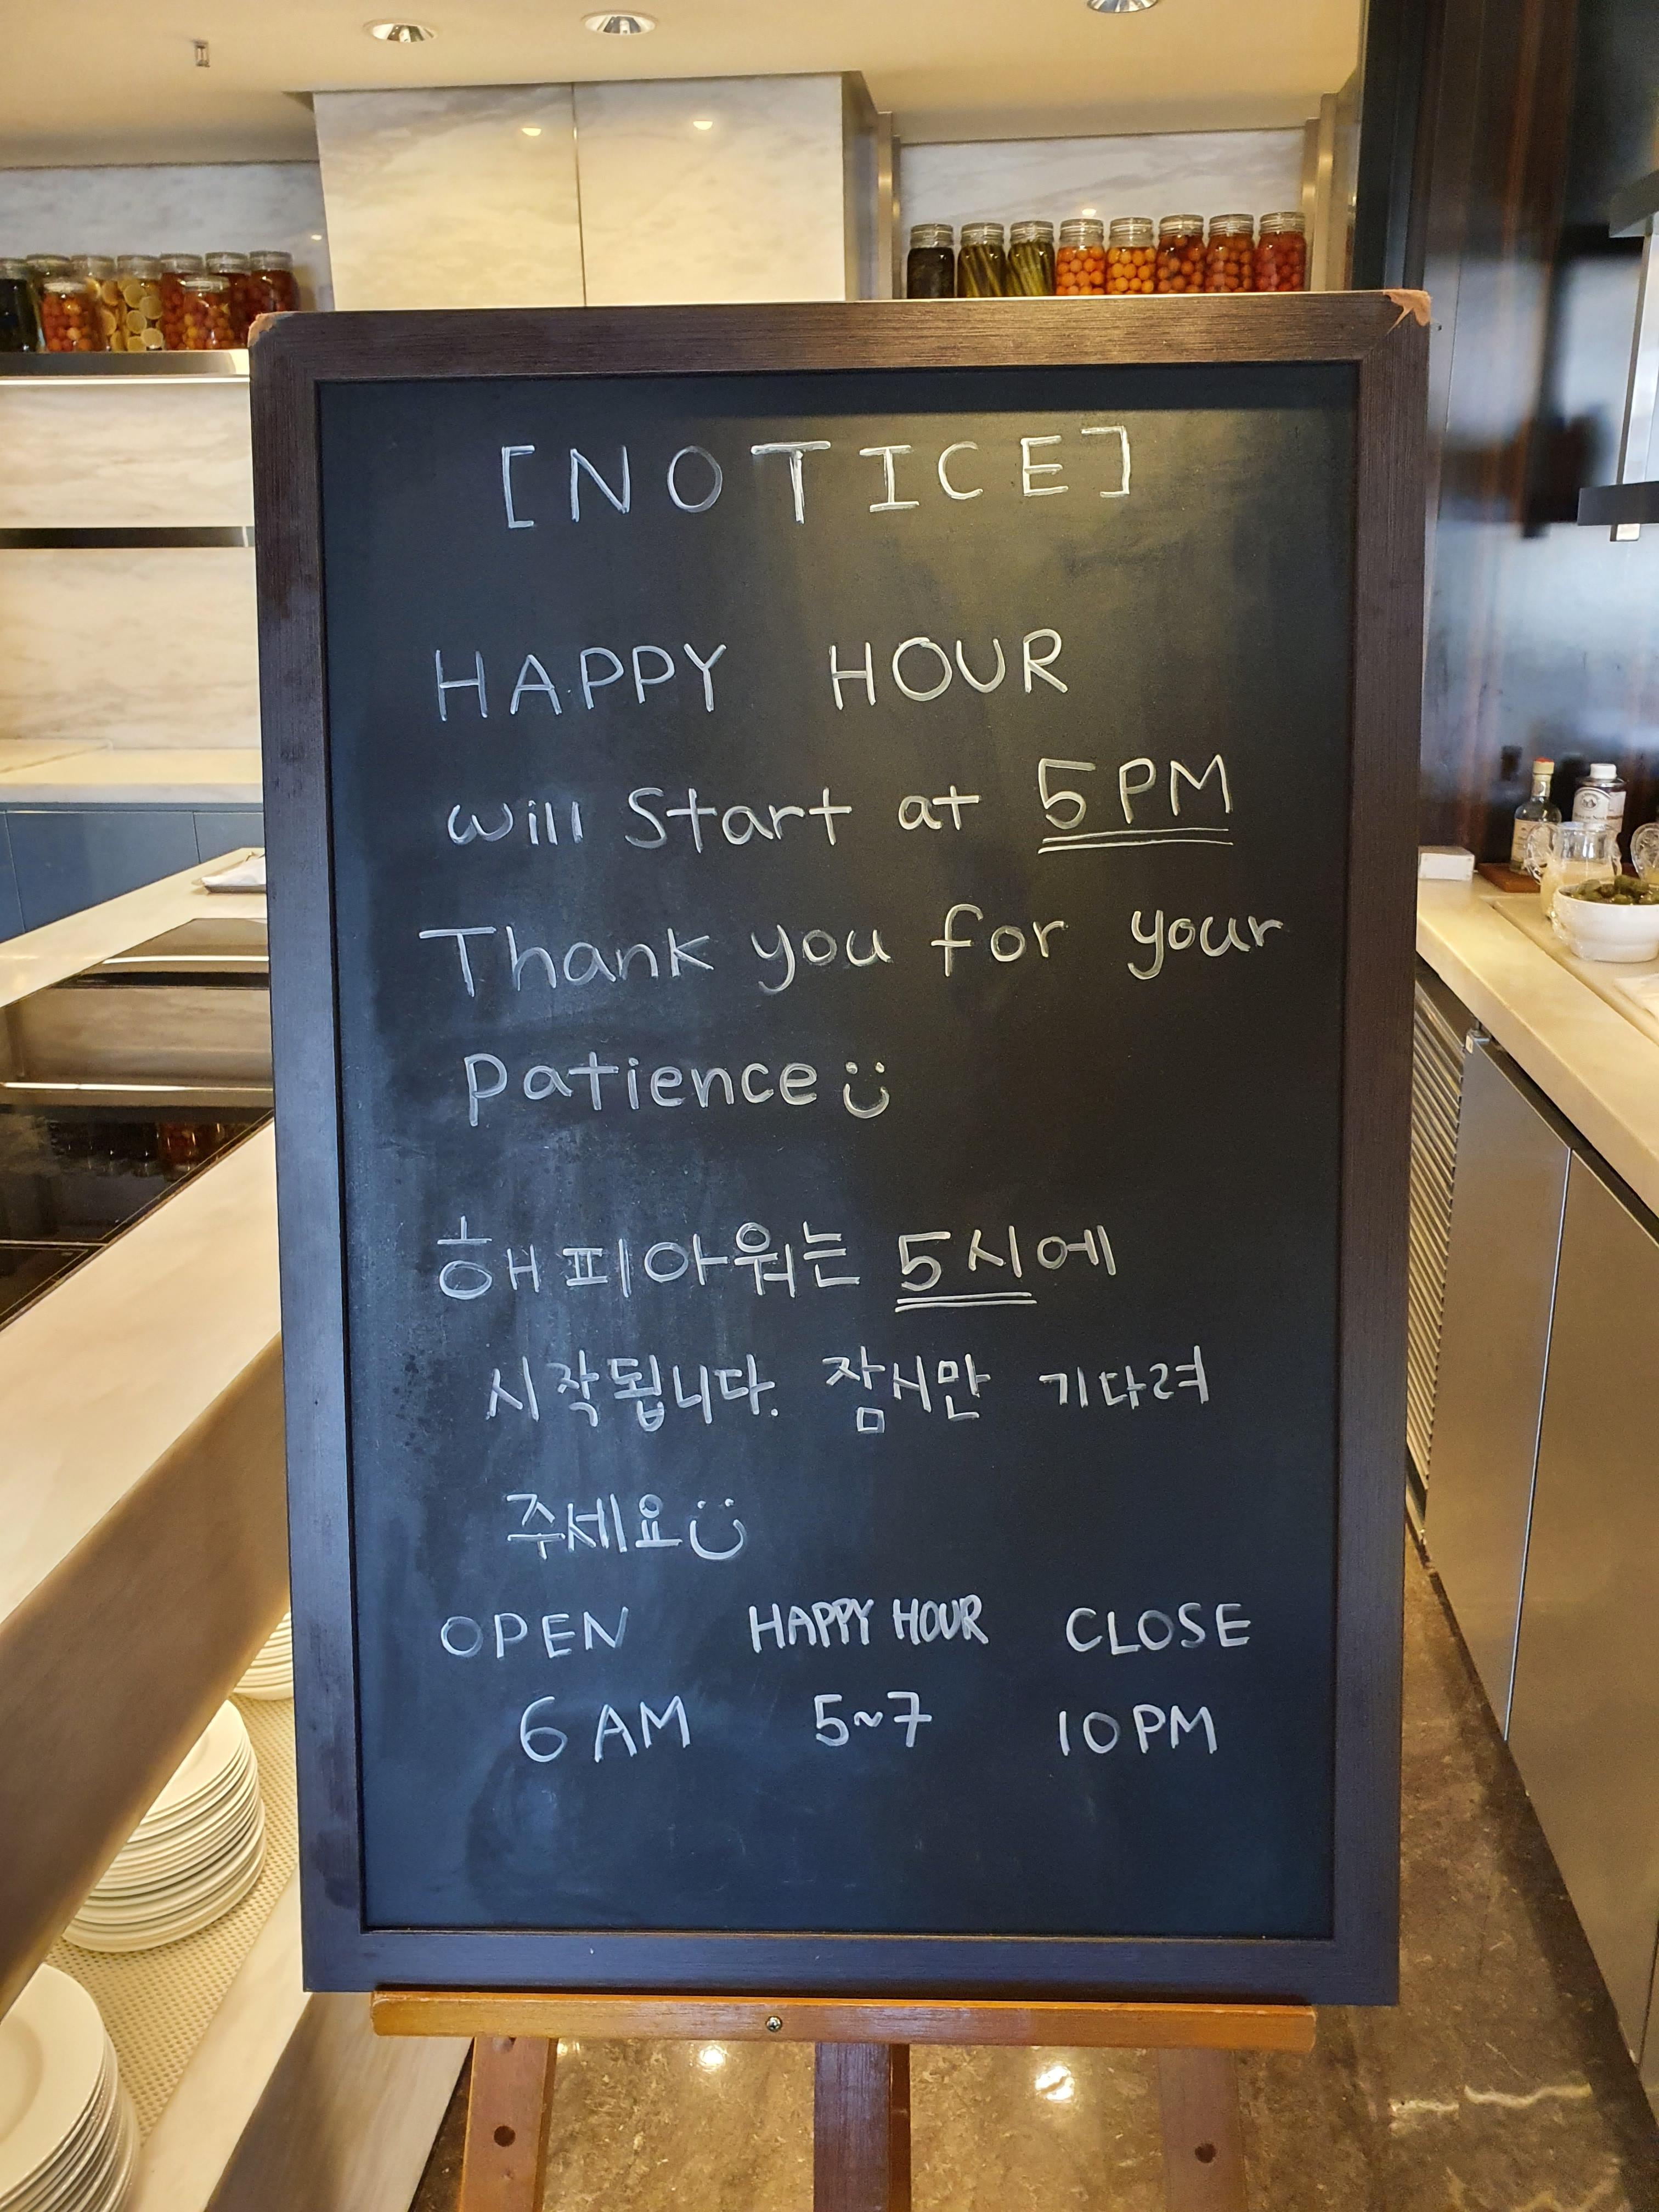 [NOTICE]
HAPPY HOUR
will Start at 5PM
Thank you for your
Patience
해피아워는 5시에
시작됩니다. 잠시만 기다려
주세요
OPEN HAPPY HOUR CLOSE
6 AM 5~7 10PM